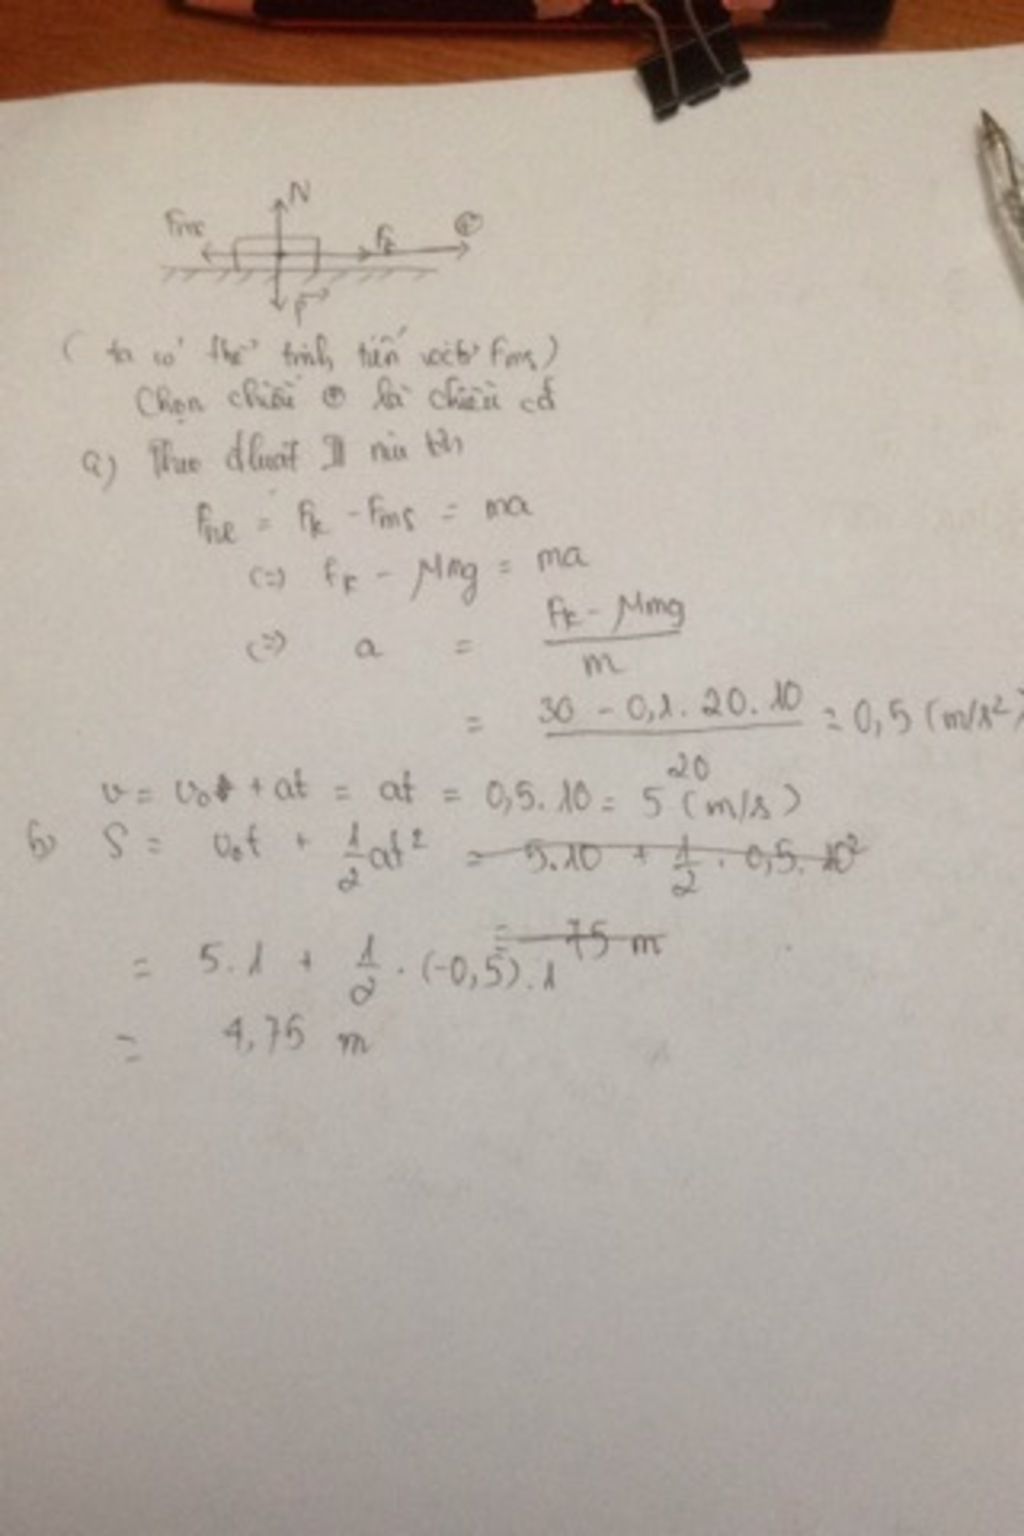 N
Fms Fk ⊕
P
(ta có thể tịnh tiến vectơ Fms)
Chọn chiều ⊕ là chiều cđ
a) Theo đluật II niu tơn
Fhl = Fk - Fms = ma
<=> Fk - μmg = ma
<=> a = (Fk - μmg)/m
= (30 - 0,1. 20. 10)/20 = 0,5 (m/s²)
v = v₀ + at = at = 0,5. 10 = 5 (m/s)
b) S = v₀t + 1/2 at² = 5.10 + 1/2 . 0,5. 10²
= 75 m
= 5.1 + 1/2 . (-0,5). 1
= 4,75 m